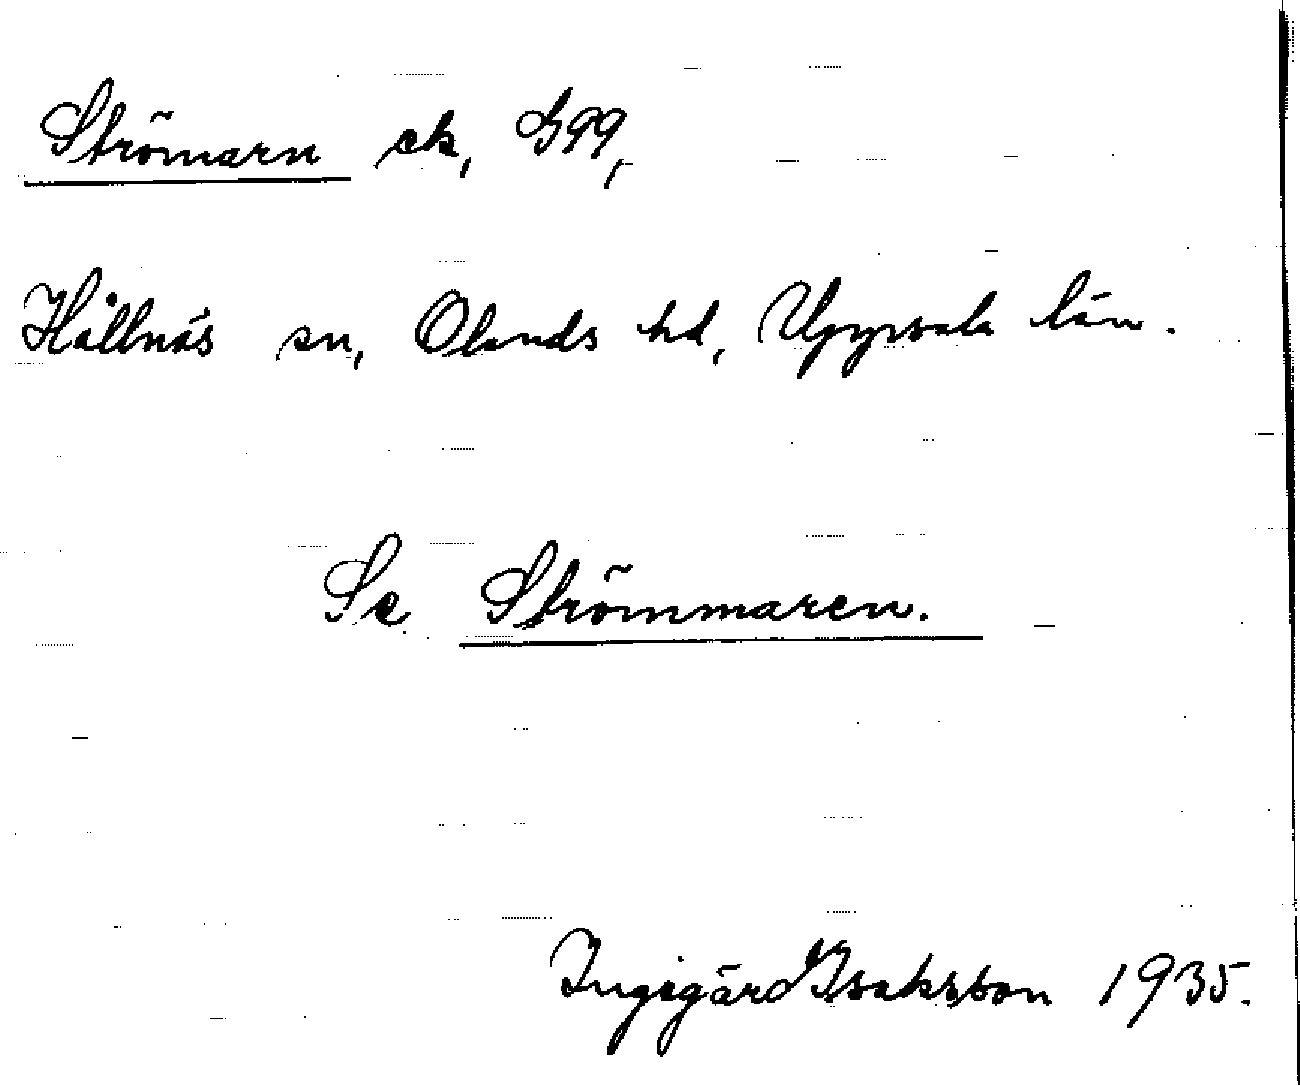 Strömarn ek, G99,
Hållnäs sn, Olands hd, Uppsala län.
Se Strömmaren.
Ingegärd Isaksson 1935.